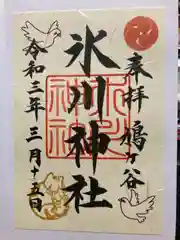 奉拝 鳩ヶ谷
氷川神社
令和三年三月十五日